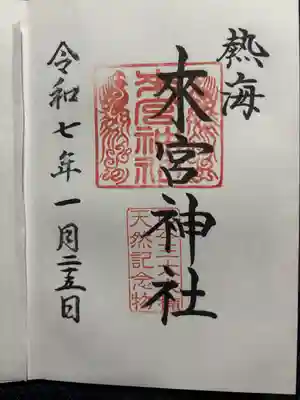 熱海
來宮神社
令和七年一月二五日
來宮神社
天然記念物